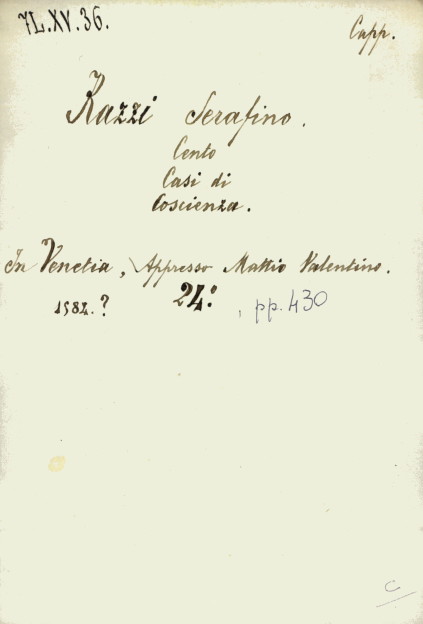 7L.XV.36.
Capp.
Razzi Serafino.
Cento
Casi di
Coscienza.
In Venetia, Appresso Mattio Valentino.
1584.? 24.° , pp. 430
C